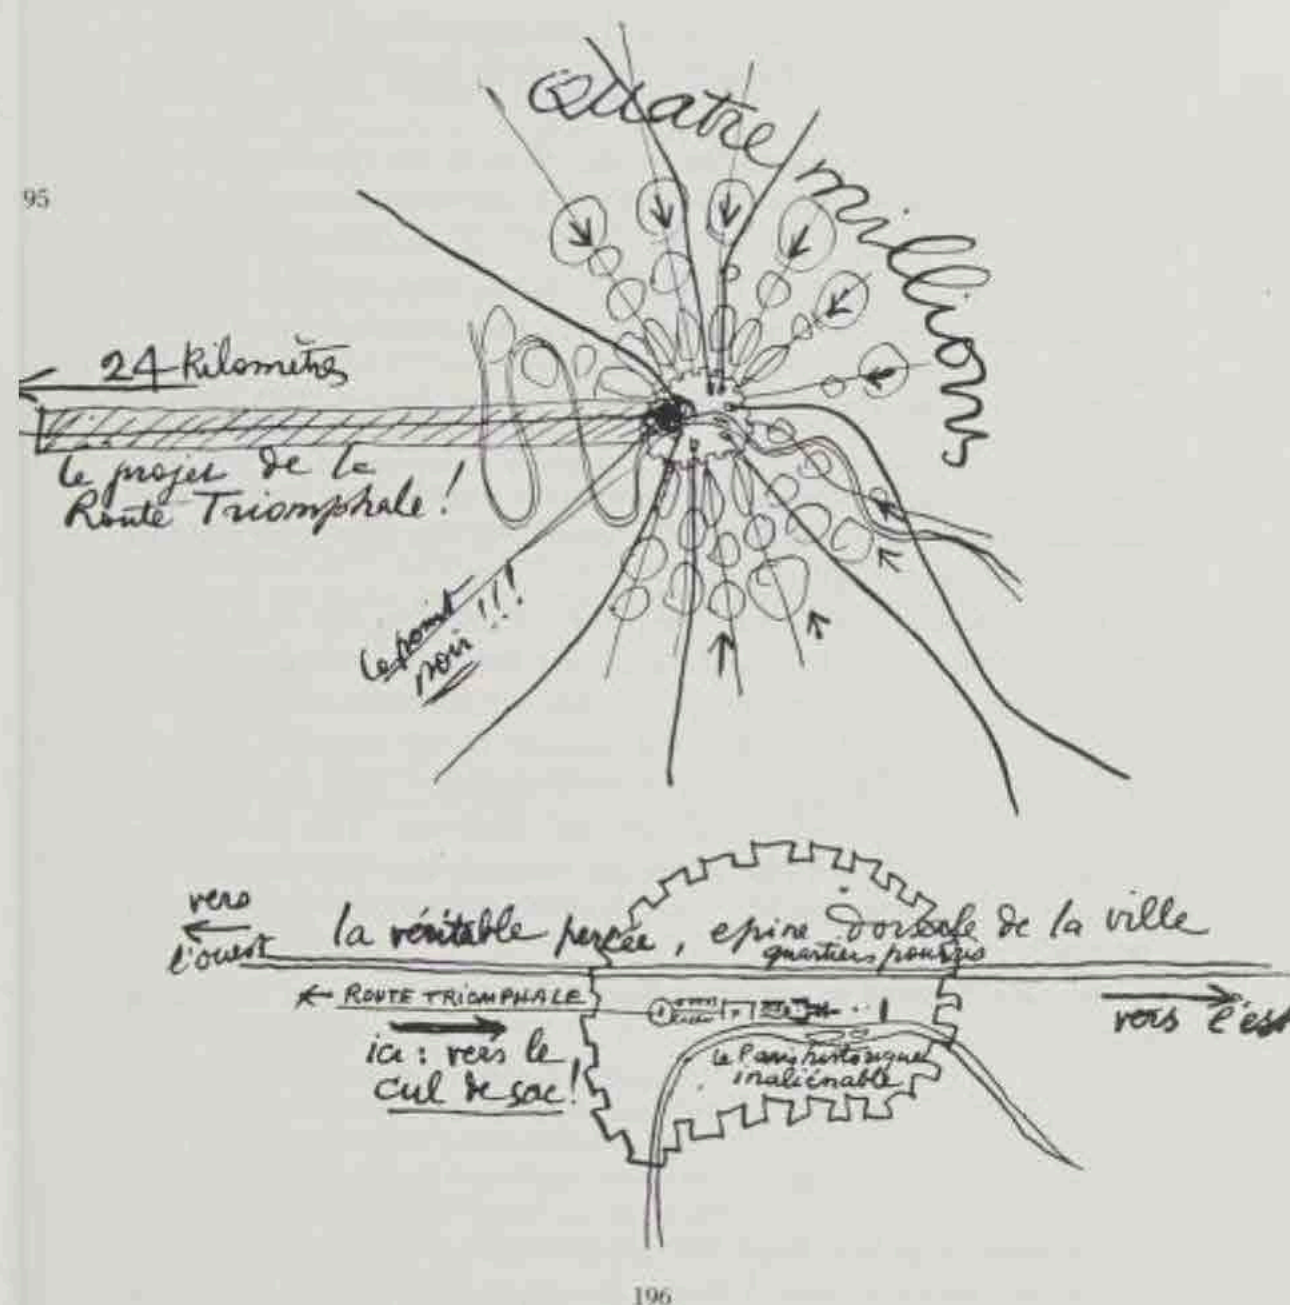 Quatre millions
95
24 Kilomètres
le projet de la
Route Triomphale !
le point
noir !!!
vers
l'ouest
la véritable percée, epine dorsale de la ville
quartiers pourris
ROUTE TRIOMPHALE
vers l'est
ici : vers le
cul de sac !
le Paris historique
inaliénable
196